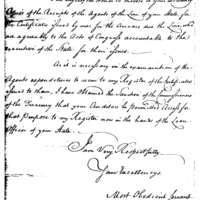 Copies of the Receipts of the Agents of the Line of your State for
the Certificates issued by me for the Arrears due the Line who
are agreeably to the Acts of Congress accountable to the
Executive of the State for their Issues.
As it is necessary on the examination of the
Agents expenditures to resort to my Register of the Certificates
issued to them, I have obtained the Sanction of the Commissioners
of the Treasury that your Auditors be permitted Access for
that purpose to my Register now in the hands of the Loan
Officer of your State.
I am Very Respectfully
Your Excellencys
Most Obedient Servant